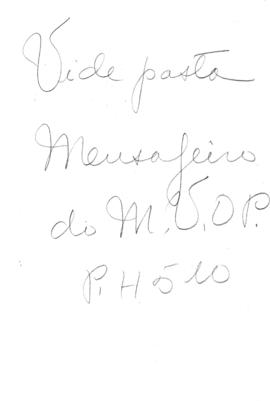 Vide pasta
Mensageiro
do M.V.O.P.
P.H 510